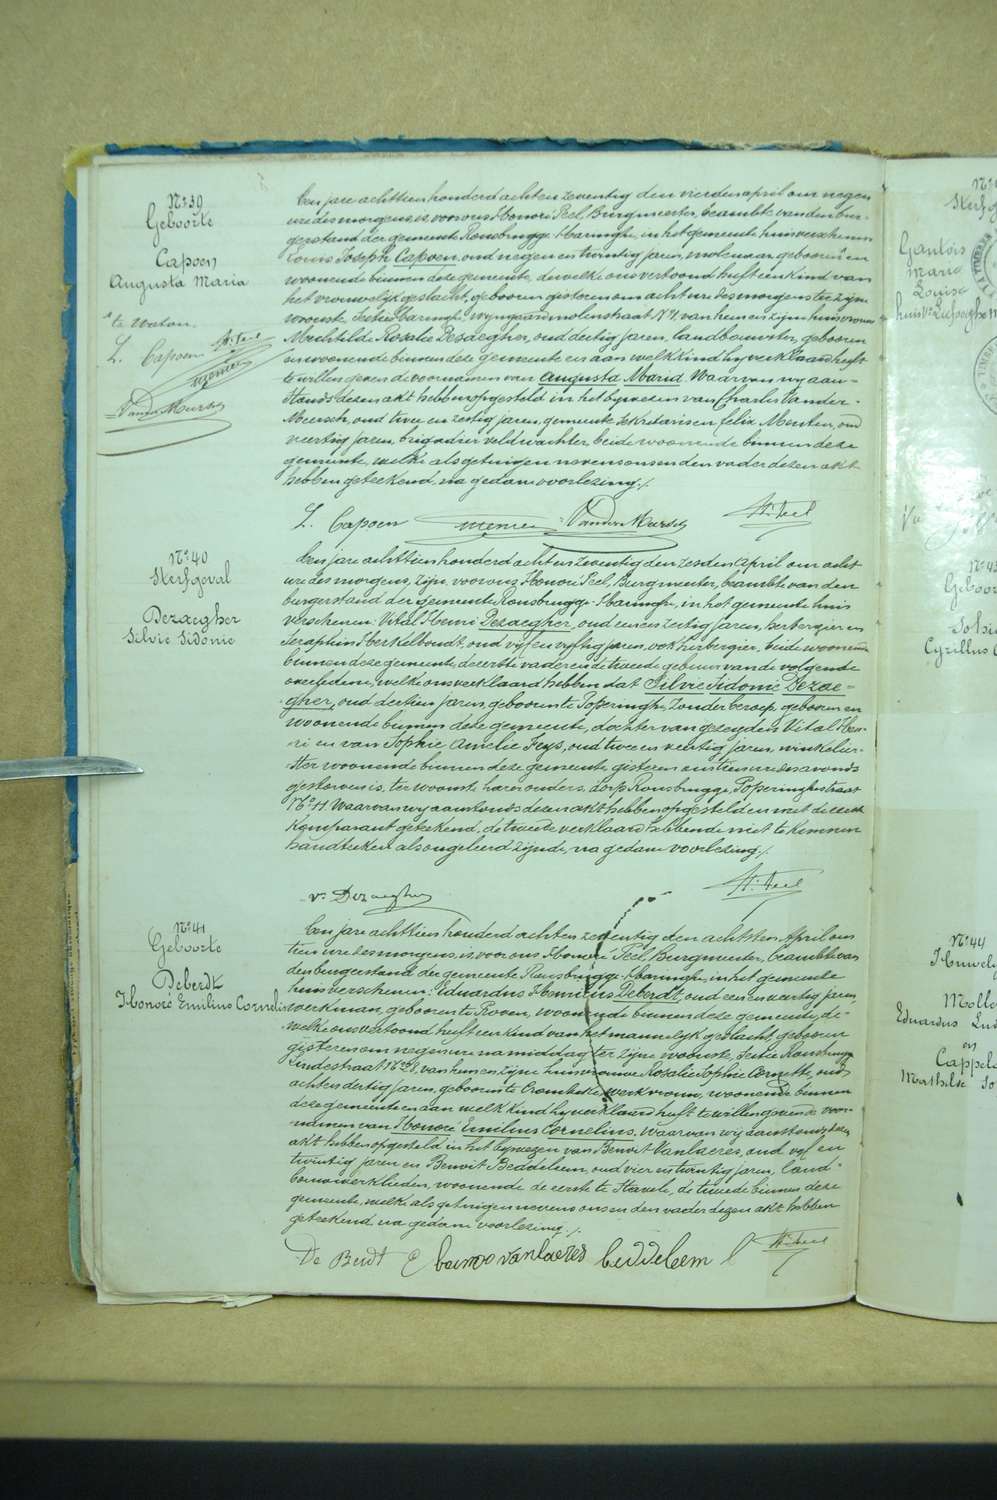 N:39
Geboorte
Capoen
Augusta Maria
te Watou.
L. Capoen H: Peel
Menten
Vander Meersch
Een jare achttien honderd acht en zeventig den vierden april om negen
ure des morgens, is voor ons Honoré Peel, Burgmeester, beambte van den bur-
gerstand der gemeente Rousbrugge-Haringhe, in het gemeente huis verschenen
Louis Joseph Capoen, oud negen en twintig jaren, molenaar, geboren en
woonende binnen deze gemeente, dewelke ons vertoond heeft een kind van
het vrouwelijk geslacht, geboren gisteren om acht ure des morgens ter zijne
woonste, sectie Haringhe, wijngaardmolenstraat Nº 4, van hem en zijne huisvrouw
Mechtilde Rosalie Dezaegher, oud dertig jaren, landbouwster, geboren
en woonende binnen deze gemeente en aan welk kind hij verklaard heeft
te willen geven de voornamen van Augusta Maria. Waarvan wij aan-
stonds dezen akt hebben opgesteld in het bijwezen van Charles Vander-
Meersch, oud twee en zestig jaren, gemeente sekretaris en felix Menten, oud
veertig jaren, brigadier veldwachter, beide woonende binnen deze
gemeente, welke als getuigen nevens ons en den vader dezen akt
hebben geteekend, na gedane voorlezing./.
L. Capoen Menten Vander Meersch H: Peel
Nº:40
Sterfgeval
Dezaegher
Silvie Sidonie
Een jare achttien honderd acht en zeventig den zesden april om acht
ure des morgens, zijn voor ons Honoré Peel, Burgmeester, beambte van den
burgerstand der gemeente Rousbrugge-Haringhe, in het gemeente huis
verschenen: Vital Henri Dezaegher, oud een en zestig jaren, herbergier en
Seraphin Herkelboudt, oud vijf en vijftig jaren, ook herbergier, beide woonende
binnen deze gemeente, de eerste vader en de tweede gebuur van de volgende
overledene, welke ons verklaard hebben dat Silvie Sidonie Dezae-
gher, oud dertien jaren, geboren te Poperinghe, zonder beroep, geboren en
woonende binnen deze gemeente, dochter van gezeyden Vital Hen-
ri en van Sophie Amelie Feys, oud twee en veertig jaren, winkelier-
ster woonende binnen deze gemeente gisteren om tien ure des avonds
gestorven is, ter woonste harer ouders, dorp Rousbrugge, Poperinghestraat
Nº 11. Waarvan wij aanstonds dezen akt hebben opgesteld en met de eerste
komparant geteekend, de tweede verklaard hebbende niet te kunnen
handteeken als ongeleerd zijnde, na gedane voorlezing./.
v. Dezaegher H: Peel
Nº:41
Geboorte
Deberdt
Honoré Emilius Cornelius
Een jare achttien honderd acht en zeventig den achtsten April om
tien ure des morgens, is voor ons Honoré Peel, Burgmeester, beambte van
den burgerstand der gemeente Rousbrugge-Haringhe, in het gemeente
huis verschenen: Eduardus Henricus Deberdt, oud een en veertig jaren,
werkman, geboren te Proven, woonende binnen deze gemeente, de-
welke ons vertoond heeft een kind van het mannelijk geslacht, geboren
gisteren om negen ure namiddag ter zijne woonste, sectie Rousbrugge
Lindestraat Nº 21, van hem en zijne huisvrouwe Rosalie Sophie Cornette, oud
acht en dertig jaren, geboren te Crombeke, werkvrouw, woonende binnen
deze gemeente en aan welk kind hij verklaard heeft te willen geven de voor-
namen van Honoré Emilius Cornelius. Waarvan wij aanstonds dezen
akt hebben opgesteld in het bijwezen van Benoit Vanlaeres, oud vijf en
twintig jaren en Benoit Beddeleem, oud vier en twintig jaren, land-
bouwwerklieden, woonende de eerste te Stavele, de tweede binnen deze
gemeente, welke als getuigen nevens ons en den vader dezen akt hebben
geteekend, na gedane voorlezing./.
De Berdt E benoo vanlaeres beddeleem H: Peel
Sterfg
Gantois
Maria
Louise
Geboor
Sohie
Cyrillus
Nº:44
Huwely
Molle
Eduardus Lud
en
Cappel
Mathilde So